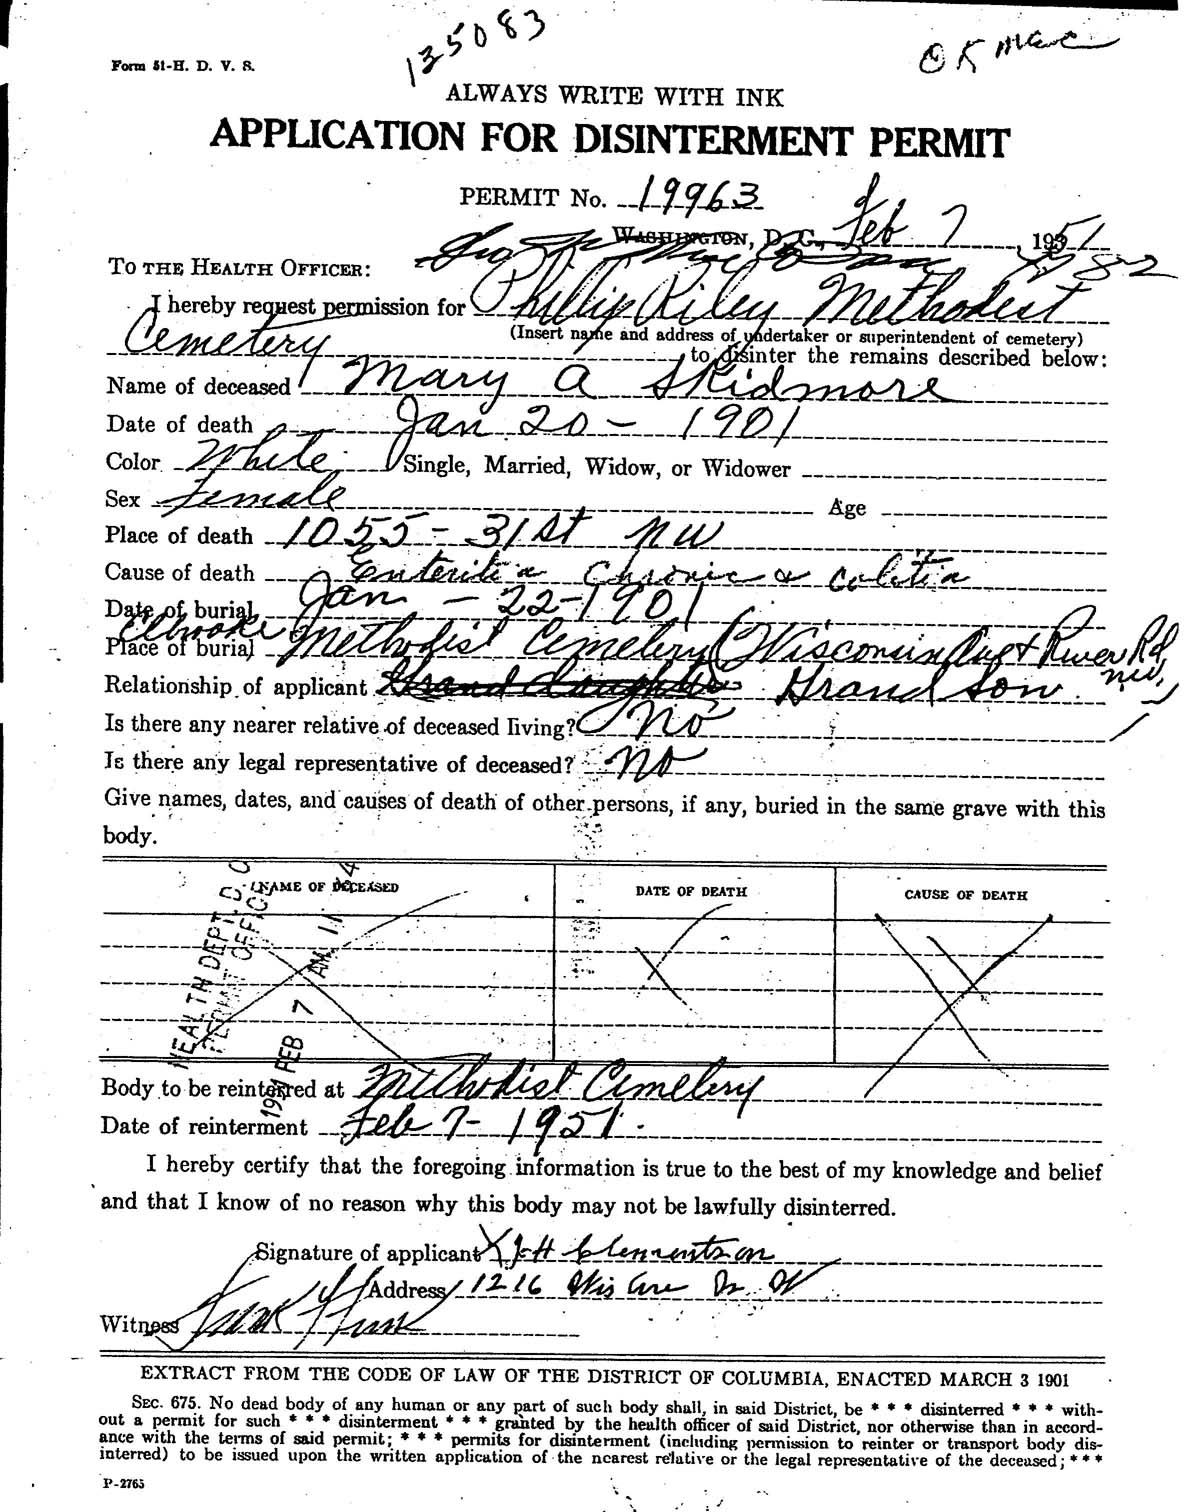 125083
OK
Form 51-H. D. V. S.
ALWAYS WRITE WITH INK
APPLICATION FOR DISINTERMENT PERMIT
PERMIT No. 19963
WASHINGTON, D. C., Feb 7, 1951
TO THE HEALTH OFFICER:
I hereby request permission for Phillip Riley Methodist
(Insert name and address of undertaker or superintendent of cemetery)
Cemetery to disinter the remains described below:
Name of deceased Mary A Skidmore
Date of death Jan 20 - 1901
Color White Single, Married, Widow, or Widower
Sex Female Age
Place of death 1055 - 31st NW
Cause of death Enteritis Chronic & Colitis
Date of burial Jan - 22 - 1901
Place of burial Methodist Cemetery (Wisconsin Ave & River Rd NW.
Relationship of applicant Grand daughter Grand Son
Is there any nearer relative of deceased living? No
Is there any legal representative of deceased? No
Give names, dates, and causes of death of other persons, if any, buried in the same grave with this
body.
NAME OF DECEASED DATE OF DEATH CAUSE OF DEATH
HEALTH DEPT. D. C.
PERMIT OFFICE
1951 FEB 7 AM 11 14
Body to be reinterred at Methodist Cemetery
Date of reinterment Feb 7 - 1951.
I hereby certify that the foregoing information is true to the best of my knowledge and belief
and that I know of no reason why this body may not be lawfully disinterred.
Signature of applicant X J H Clementson
Address 1216 Wis Ave N. W
Witness
EXTRACT FROM THE CODE OF LAW OF THE DISTRICT OF COLUMBIA, ENACTED MARCH 3 1901
SEC. 675. No dead body of any human or any part of such body shall, in said District, be * * * disinterred * * * with-
out a permit for such * * * disinterment * * * granted by the health officer of said District, nor otherwise than in accord-
ance with the terms of said permit; * * * permits for disinterment (including permission to reinter or transport body dis-
interred) to be issued upon the written application of the nearest relative or the legal representative of the deceased; * * *
P-2765